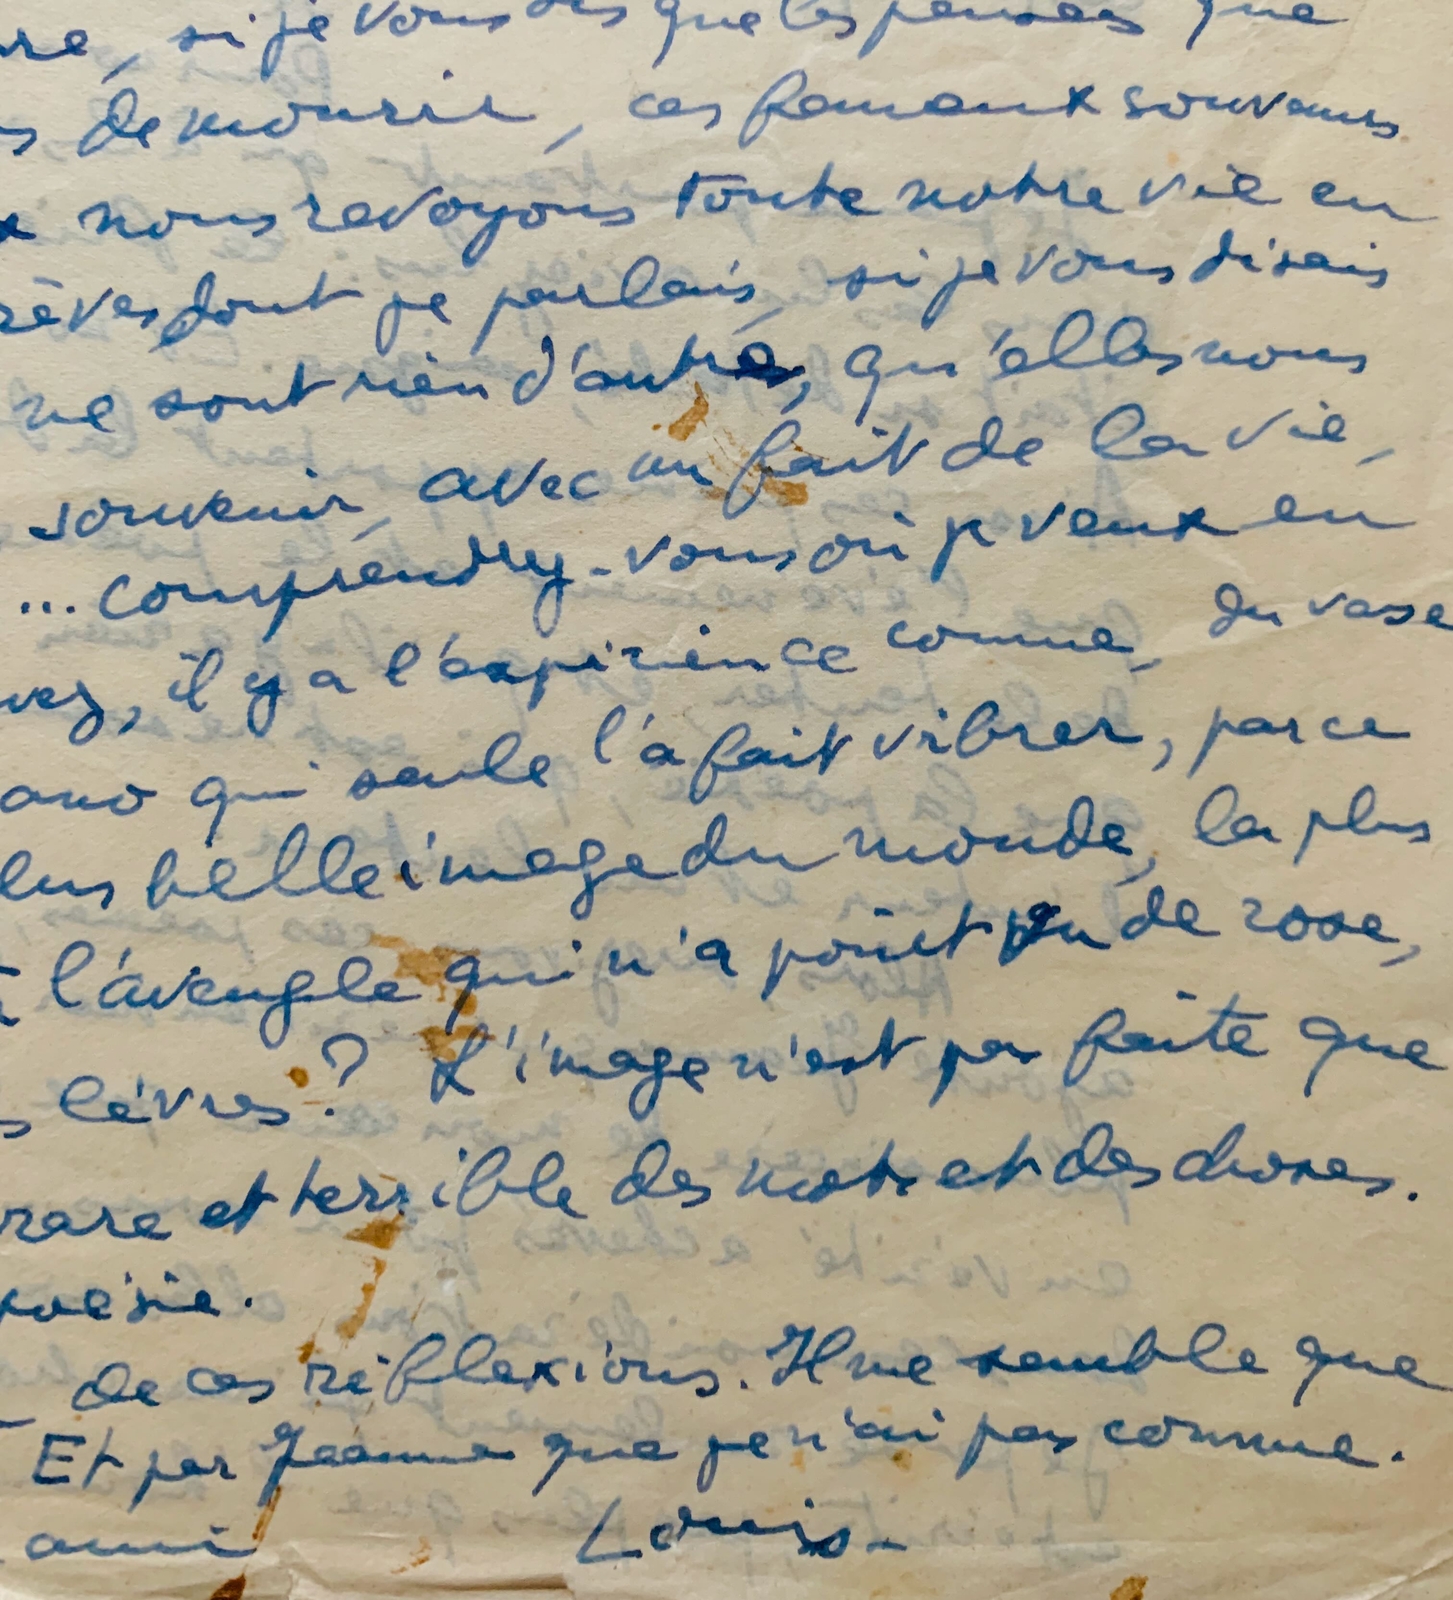 si je vous dis que les pensées que
de mourir, ces fameux souvenirs
nous revoyons toute notre vie en
rêves dont je parlais, si je vous disais
ne sont rien d'autre, qu'elles nous
souvenir, avec un fait de la vie,
... comprendrez-vous où je veux en
il y a l'expérience comme, du vase
qui seule l'a fait vibrer, parce
belle image du monde, la plus
l'aveugle qui n'a point de rose,
lèvres ? L'image n'est pas faite que
rare et terrible des mots et des choses.
poésie.
de ces réflexions. Il me semble que
Et par Jeanne que je n'ai pas connue.
ami Louis-